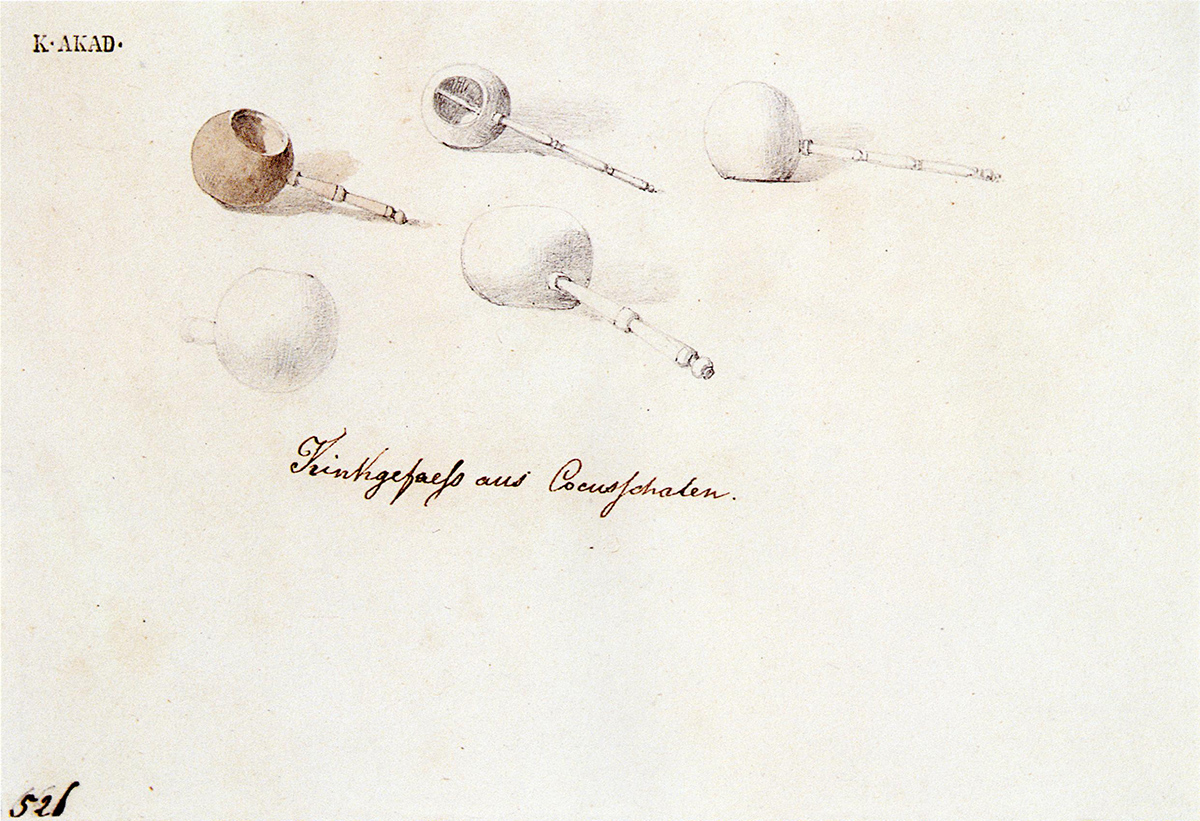 K·AKAD·
Trinkgefaeſs aus Cocusſchalen.
526